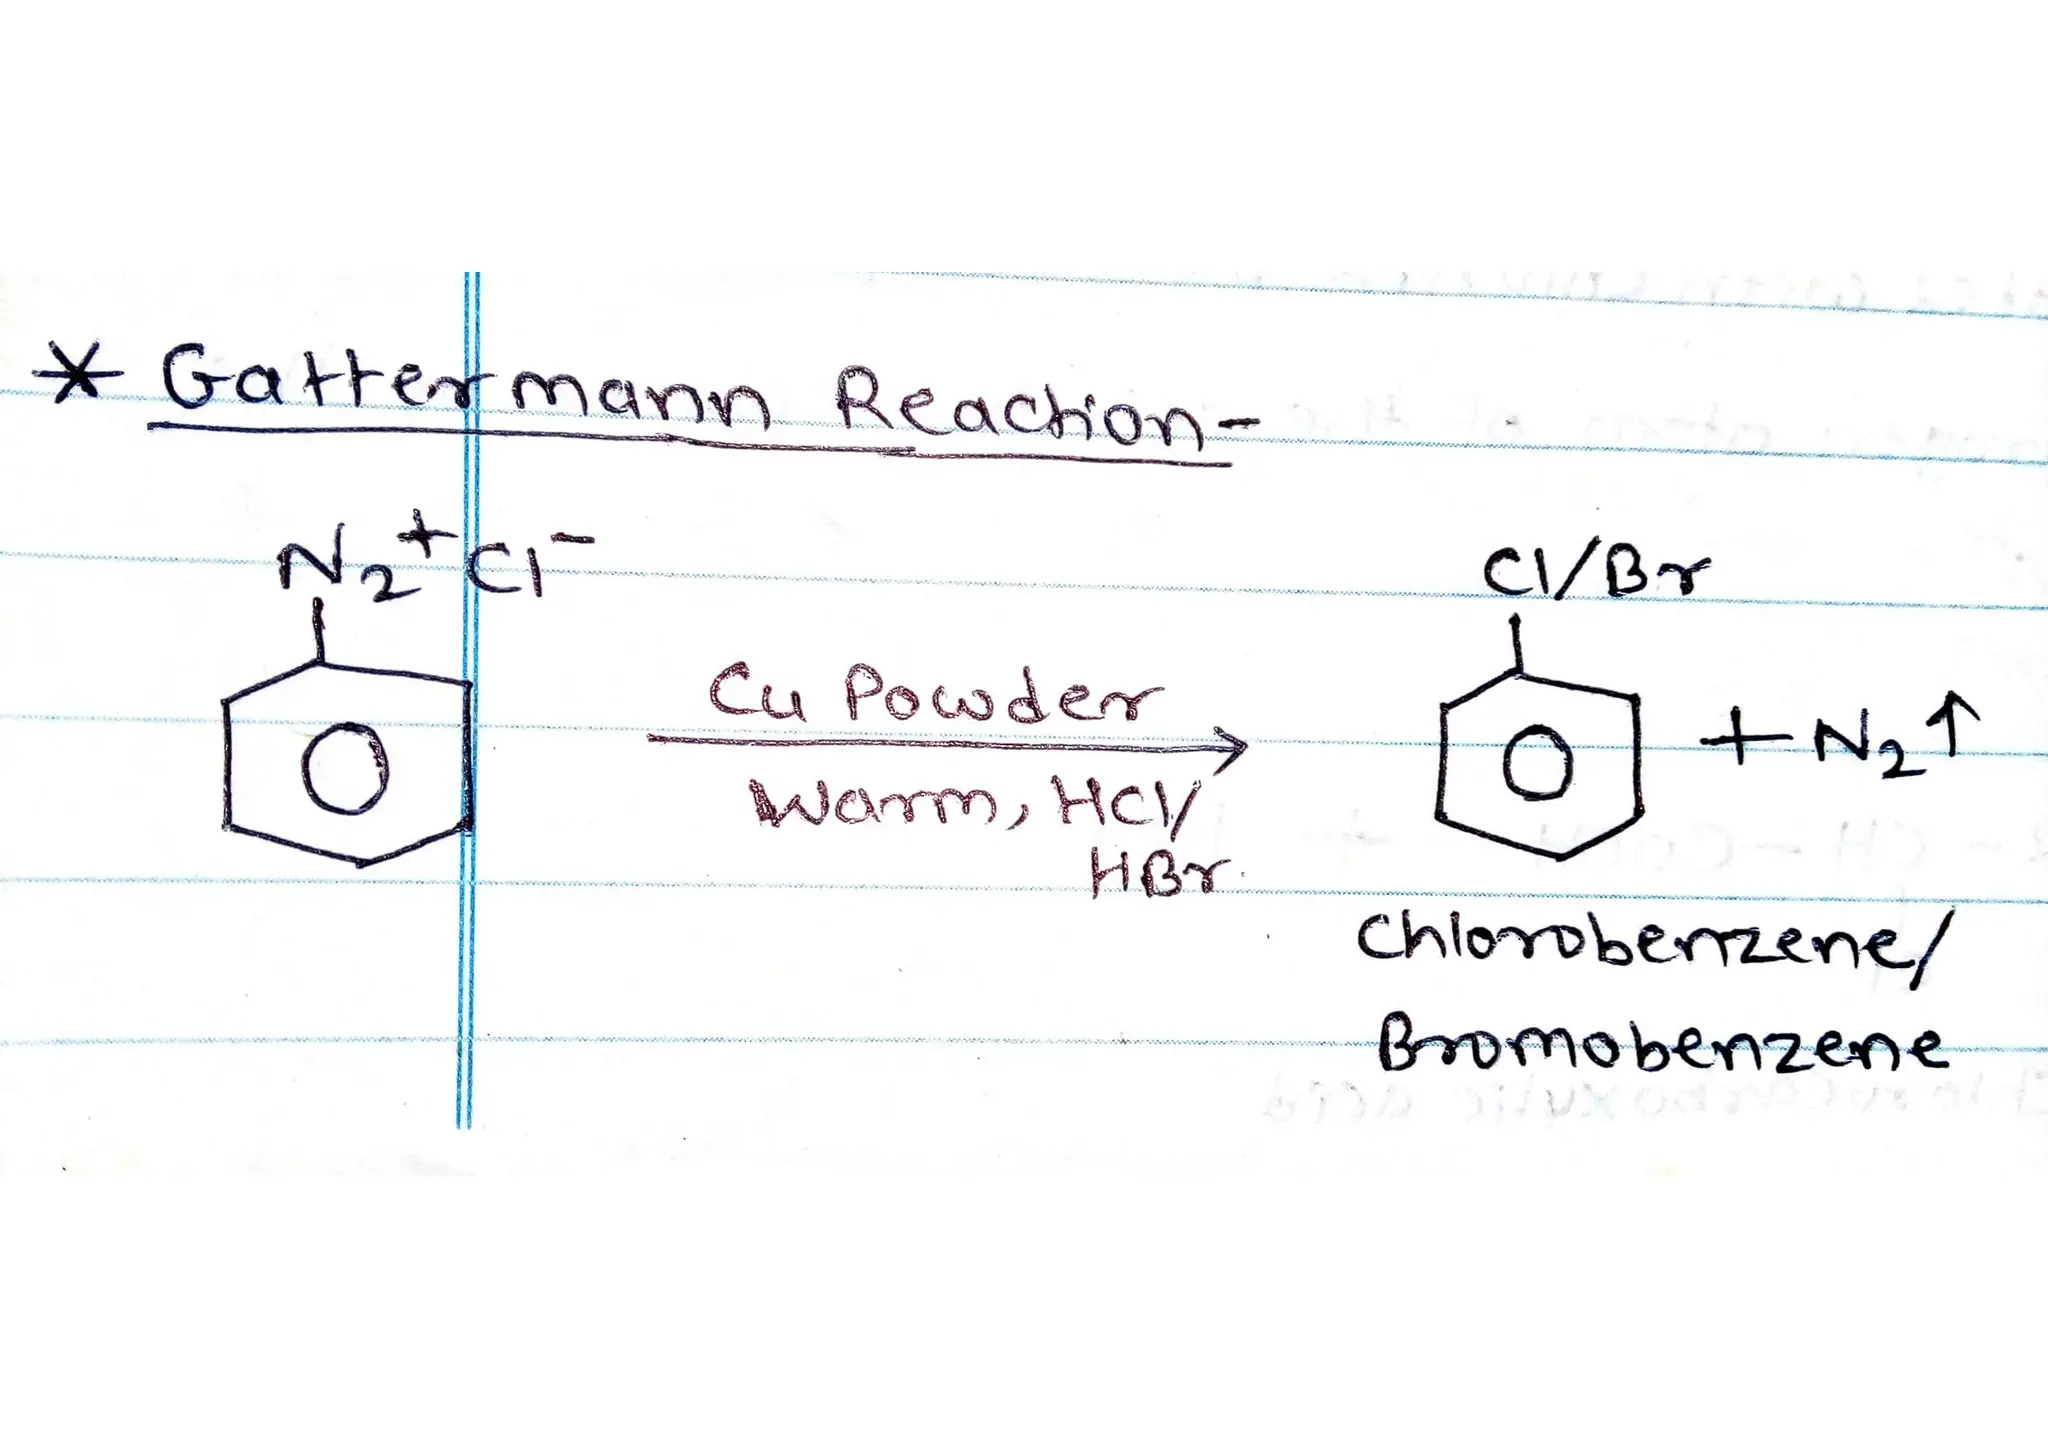 * Gattermann Reaction-
N₂⁺Cl⁻
Cu Powder
Warm, HCl/
HBr
Cl/Br
+ N₂↑
Chlorobenzene/
Bromobenzene